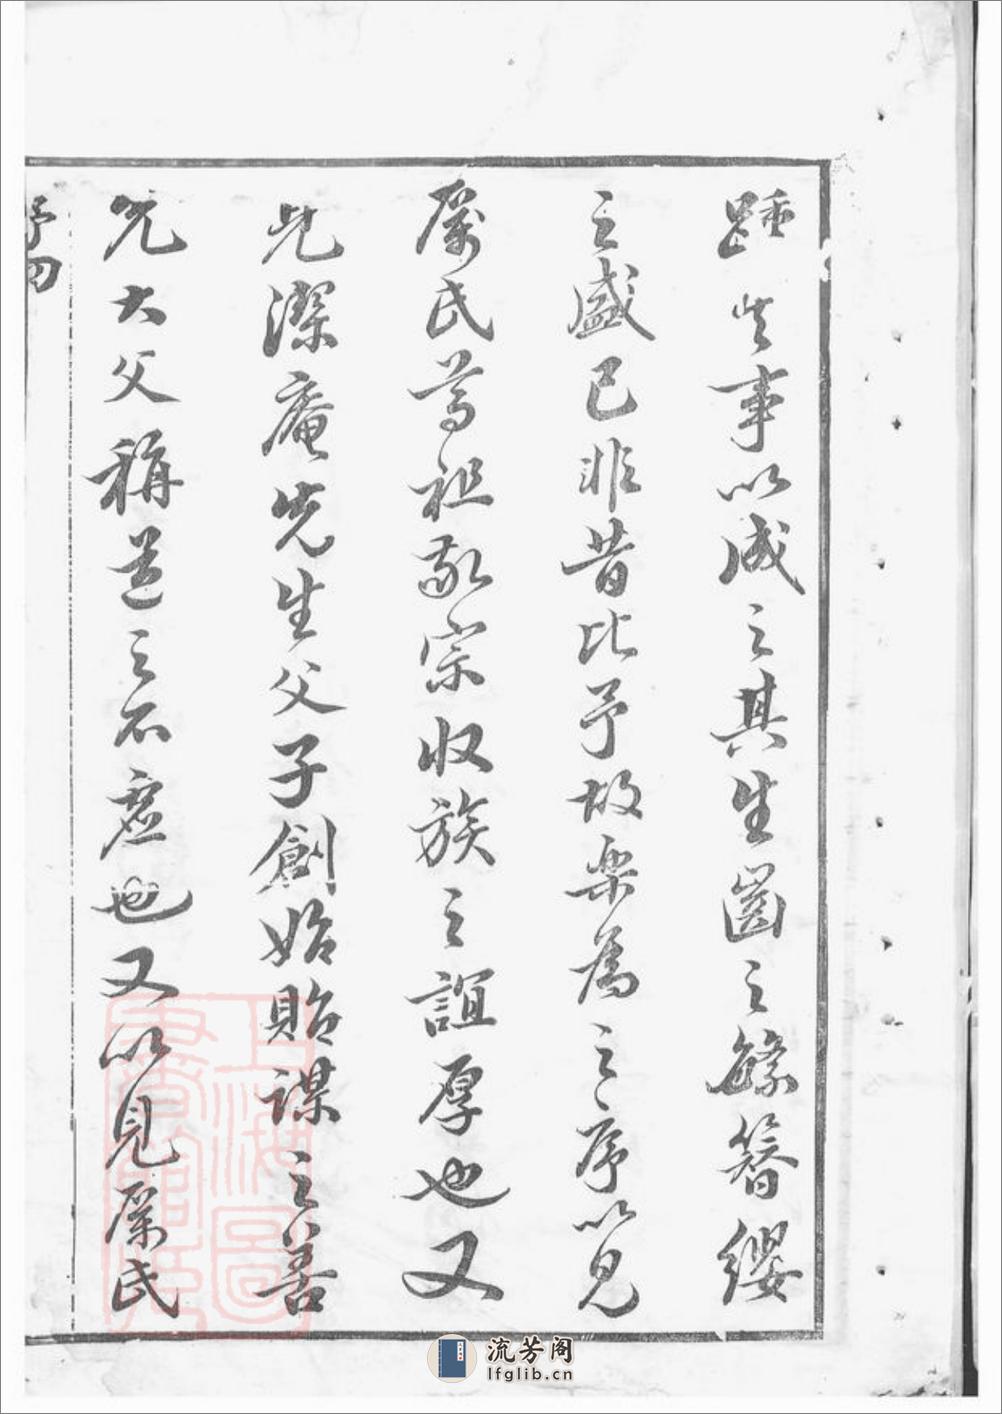 踵其事以成之其生齒之繇簪纓
之盛已非昔比予故樂為之序以見
厲氏尊祖敬宗收族之誼厚也又
見深庵先生父子創始貽謀之善
先大父稱道之不虛也又以見厲氏
序四
上海圖書館藏
流芳阁
lfglib.cn